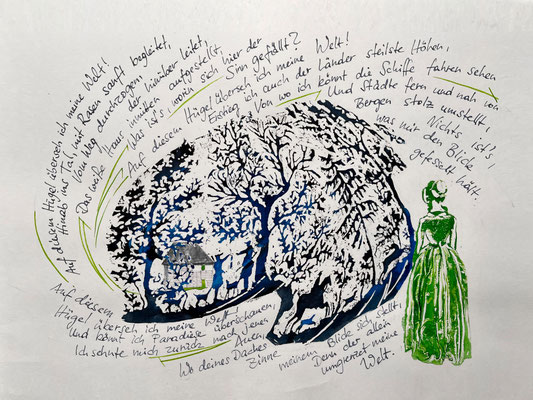 Auf diesem Hügel überseh ich meine Welt!
Hinab ins Tal, mit Rasen sanft begleitet,
Vom Weg durchzogen, der hinüber leitet,
Das weiße Haus inmitten aufgestellt,
Was ist's, worin sich hier der Sinn gefällt?
Auf diesem Hügel überseh ich meine Welt!
Erstieg ich auch der Länder steilste Höhen,
Von wo ich könnt die Schiffe fahren sehen
Und Städte fern und nah von
Bergen stolz umstellt,
Nichts ist's,
was mir den Blick
gefesselt hält.
Auf diesem
Hügel überseh ich meine Welt!
Und könnt ich Paradiese überschauen,
Ich sehnte mich zurück nach jenen Auen,
Wo deines Daches Zinne meinem Blick sich stellt,
Denn der allein
umgrenzet meine
Welt.